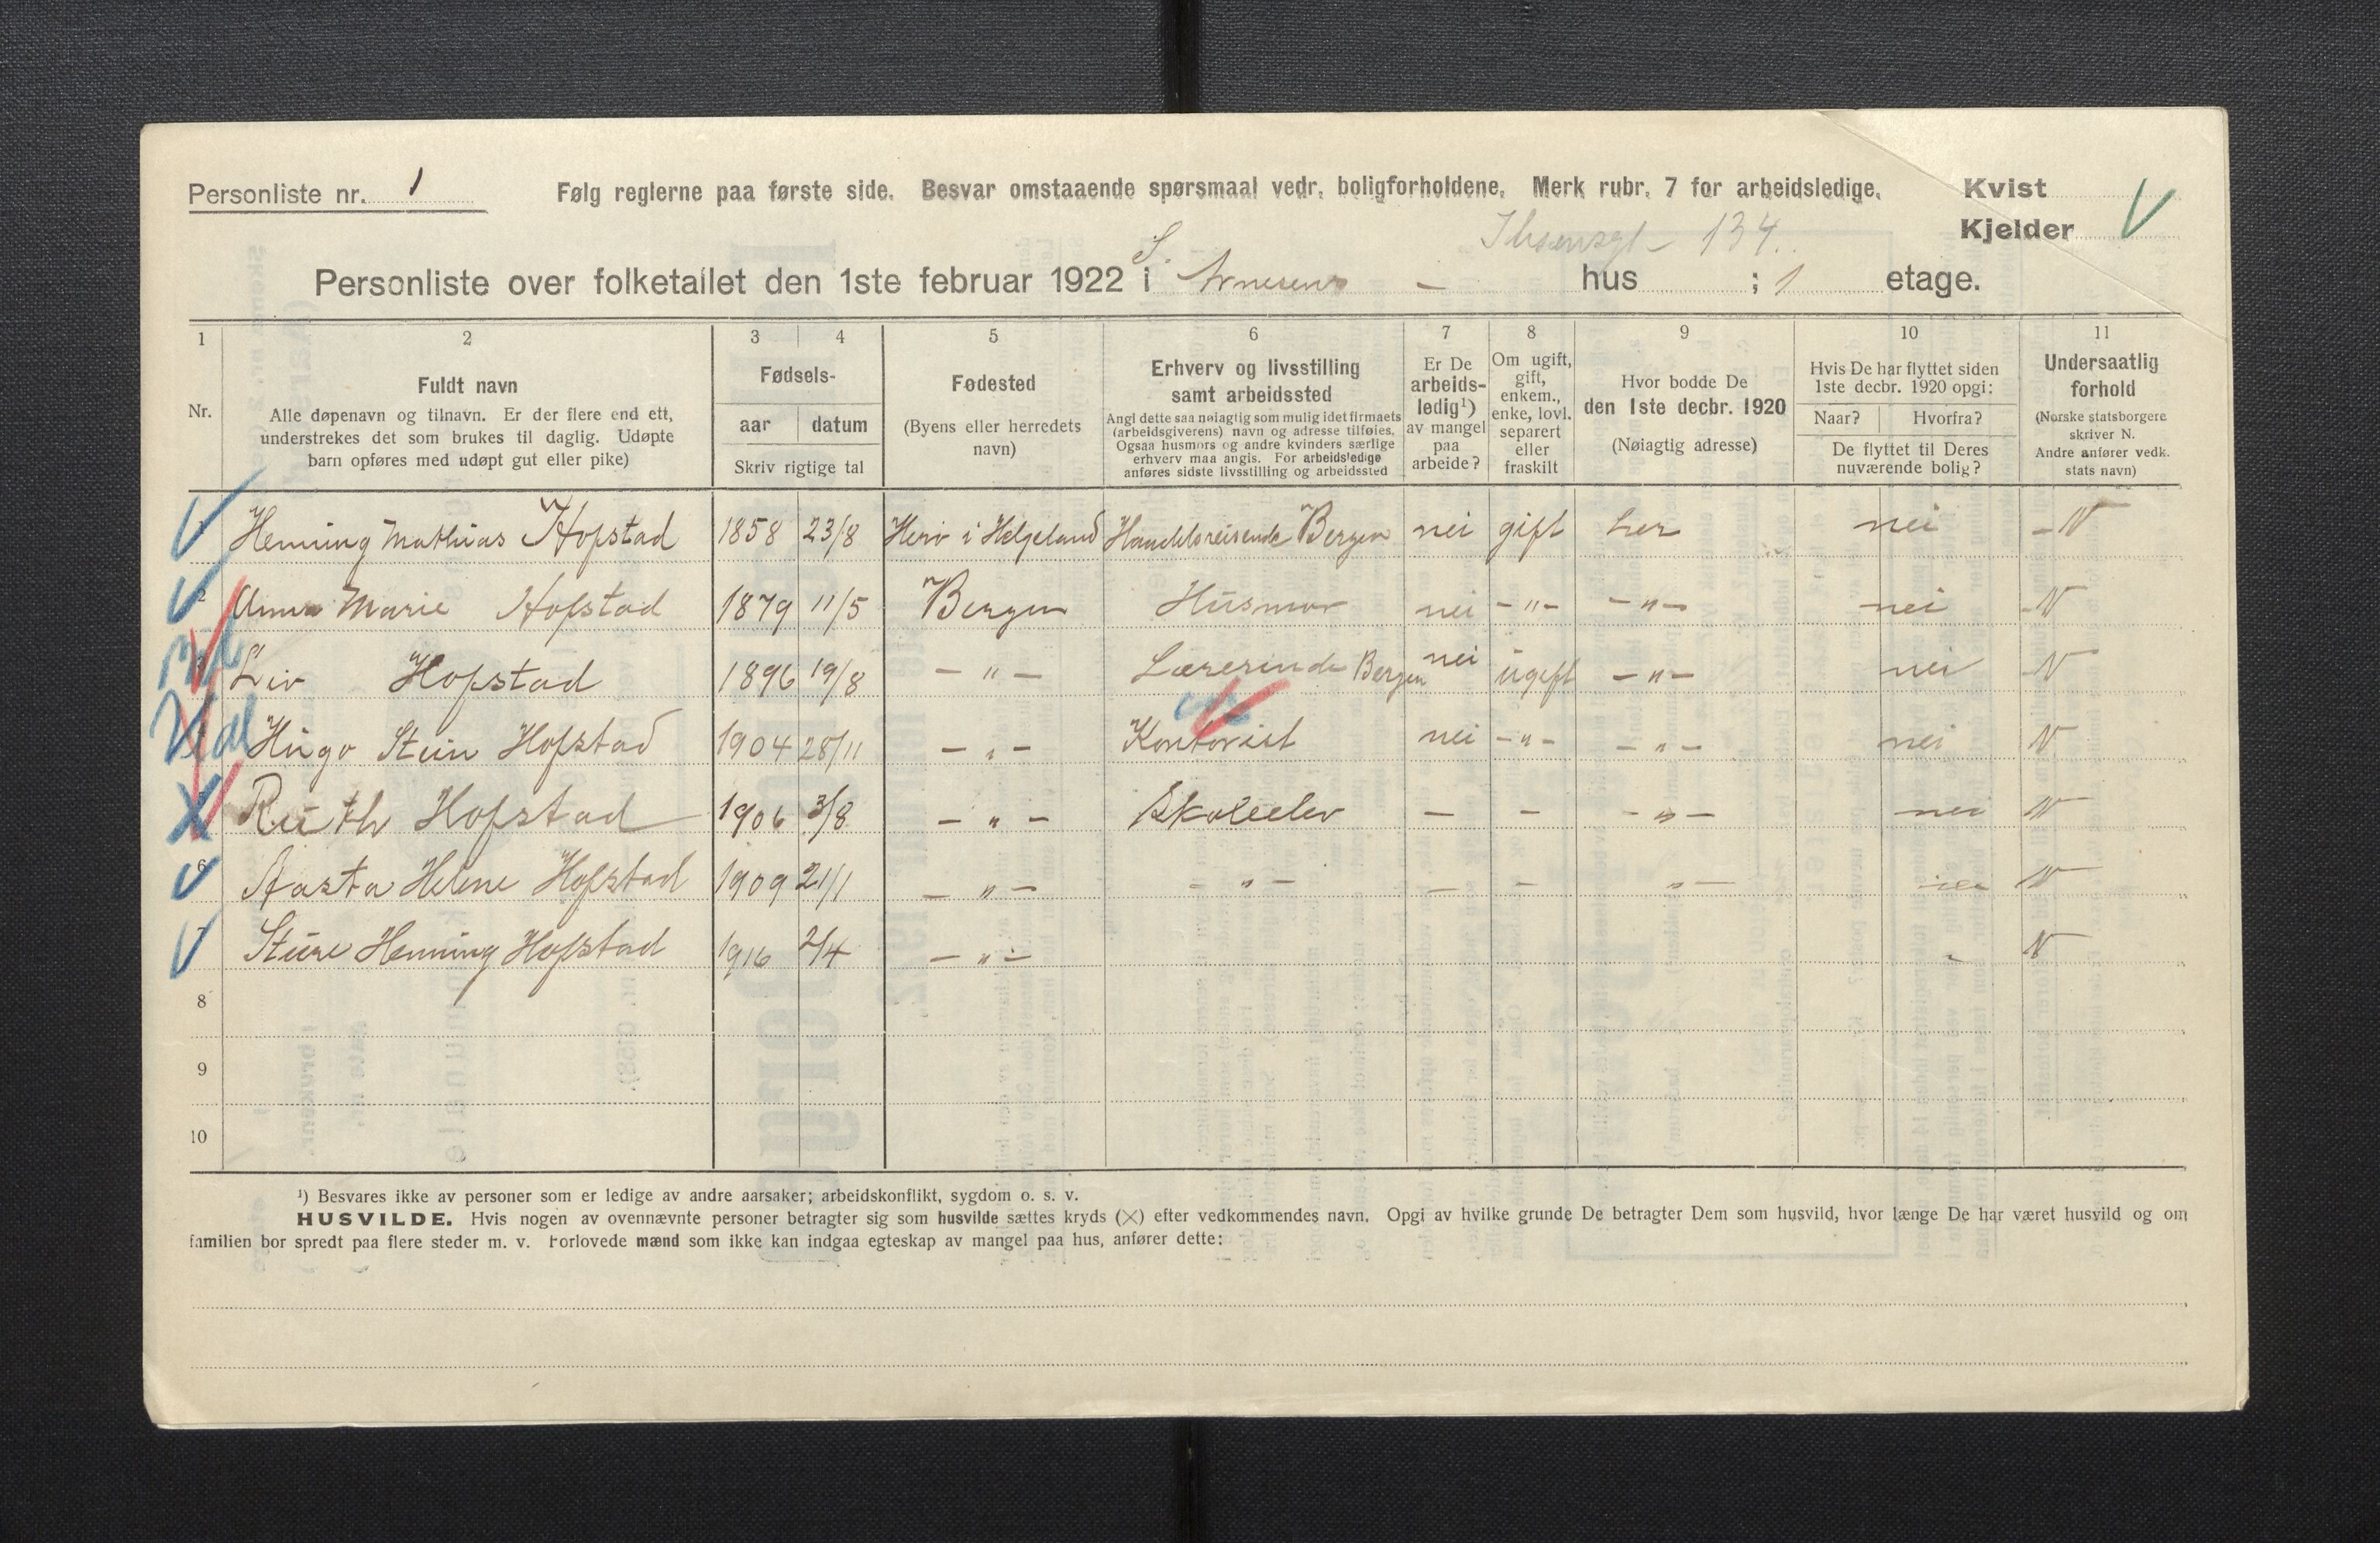 Personliste nr. 1 Følg reglerne paa første side. Besvar omstaaende spørsmaal vedr. boligforholdene. Merk rubr. 7 for arbeidsledige. Kvist
Kjelder V
Ibsensgt 134.
Personliste over folketallet den 1ste februar 1922 i S. Arnesens - hus ; 1 etage.
1 2 3 4 5 6 7 8 9 10 11
Nr.
Fuldt navn
Alle døpenavn og tilnavn. Er der flere end ett,
understrekes det som brukes til daglig. Udøpte
barn opføres med udøpt gut eller pike)
Fødsels-
aar datum
Skriv rigtige tal
Fødested
(Byens eller herredets
navn)
Erhverv og livsstilling
samt arbeidssted
Angi dette saa nøiagtig som mulig idet firmaets
(arbeidsgiverens) navn og adresse tilføies.
Ogsaa husmors og andre kvinders særlige
erhverv maa angis. For arbeidsledige
anføres sidste livsstilling og arbeidssted
Er De
arbeids-
ledig¹)
av mangel
paa
arbeide?
Om ugift,
gift,
enkem.,
enke, lovl.
separert
eller
fraskilt
Hvor bodde De
den 1ste decbr. 1920
(Nøiagtig adresse)
Hvis De har flyttet siden
1ste decbr. 1920 opgi:
Naar? Hvorfra?
De flyttet til Deres
nuværende bolig?
Undersaatlig
forhold
(Norske statsborgere
skriver N.
Andre anfører vedk.
stats navn)
Henning Mathias Hofstad 1858 23/8 Herø i Helgeland Handelsreisende Bergen nei gift her nei - N
2 Anna Marie Hofstad 1879 11/5 Bergen Husmor nei - " - - " - nei - N
Liv Hofstad 1896 19/8 - " - Lærerinde Bergen nei ugift - " - nei N
Hugo Stein Hofstad 1904 28/11 - " - Kontorist nei - " - - " - nei N
Ruth Hofstad 1906 3/8 - " - Skoleelev - - - " - nei N
6 Aasta Helene Hofstad 1909 21/1 - " - - " - - - " - nei N
7 Sture Henning Hofstad 1916 2/4 - " - N
8
9
10
¹) Besvares ikke av personer som er ledige av andre aarsaker; arbeidskonflikt, sygdom o. s. v.
HUSVILDE. Hvis nogen av ovennævnte personer betragter sig som husvilde sættes kryds (×) efter vedkommendes navn. Opgi av hvilke grunde De betragter Dem som husvild, hvor længe De har været husvild og om
familien bor spredt paa flere steder m. v. Forlovede mænd som ikke kan indgaa egteskap av mangel paa hus, anfører dette: